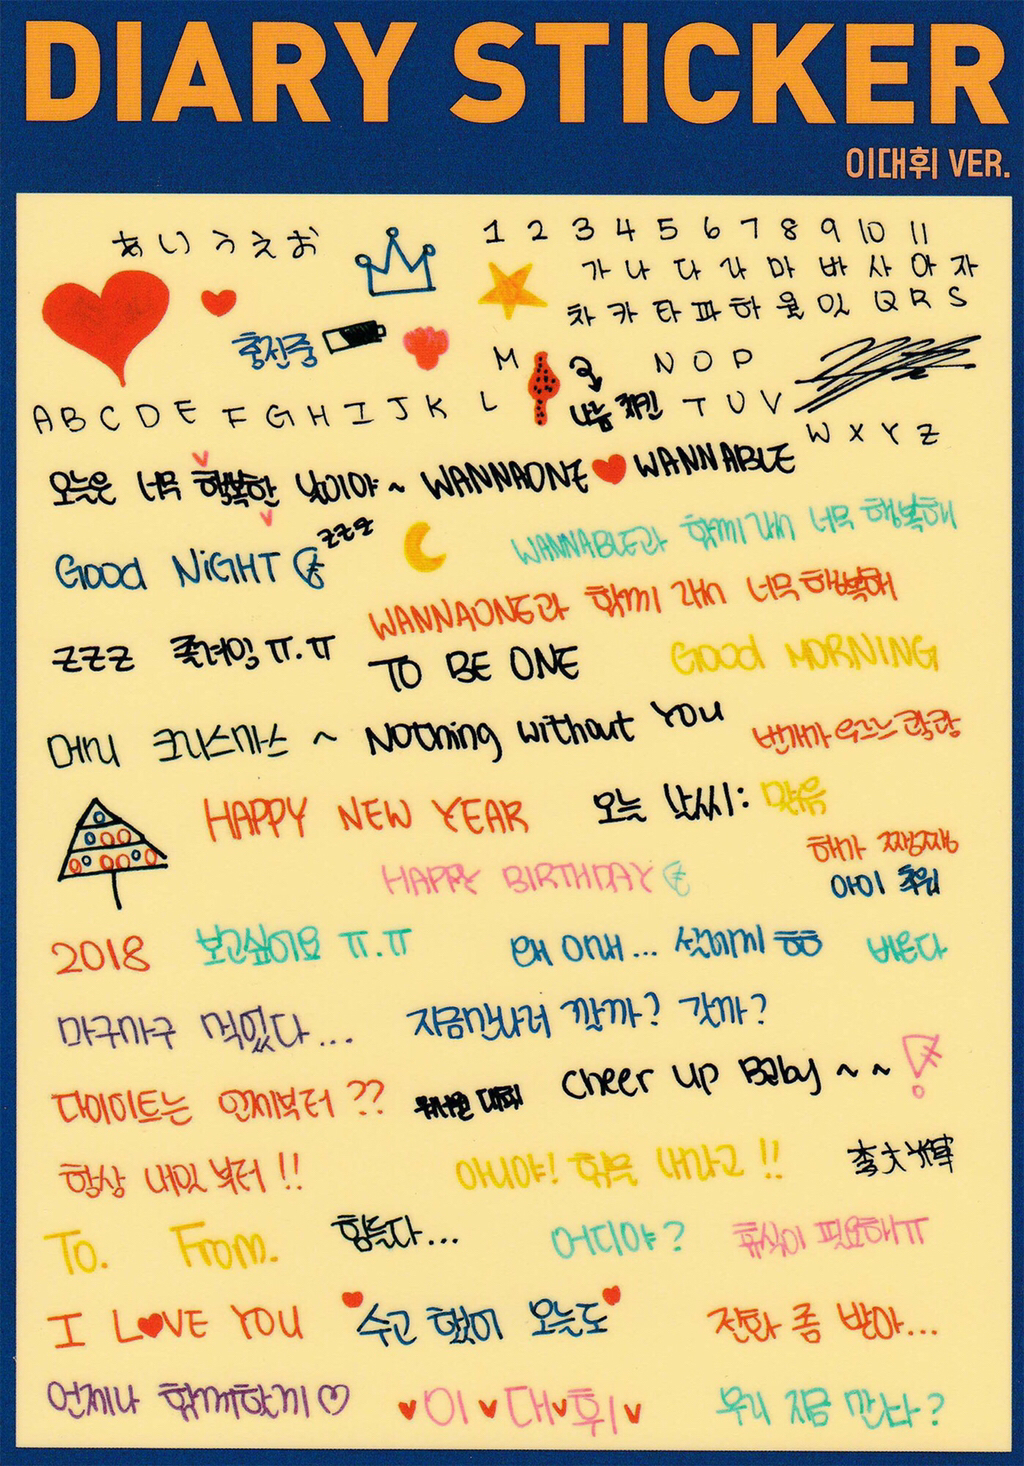 DIARY STICKER
이대휘 VER.
あいうえお
1 2 3 4 5 6 7 8 9 10 11
가 나 다 라 마 바 사 아 자
차 카 타 파 하 Q R S
충전중
M N O P
A B C D E F G H I J K L 치킨 T U V
W X Y Z
오늘은 너무 행복한 날이야~ WANNAONE ♥ WANNABLE
GOOD NiGHT zzz
WANNABLE과 함께 해서 너무 행복해
WANNAONE과 함께 해서 너무 행복해
zzz 졸려잉 ㅠ.ㅠ
TO BE ONE
GOOD MORNING
메리 크리스마스 ~ Nothing without YOU
번개가 우르르 쾅쾅
HAPPY NEW YEAR
오늘 날씨: 맑음
해가 쨍쨍
HAPPY BIRTHDAY
아이 추워
2018 보고싶어요 ㅠ.ㅠ
왜 이래... 설레게 ㅎㅎ
배운다
마구마구 먹었다...
지금만나러 갈까? 갓까?
다이어트는 언제부터??
대휘
cheer up Baby ~ ~
항상 내일 부터!!
아니야! 힘을 내라고!!
李大輝
To. From.
힘들다...
어디야?
휴식이 필요해ㅠ
I L♥VE YOU
수고 했어 오늘도
전화 좀 받아...
언제나 함께하자♡
이대휘
우리 지금 만나?